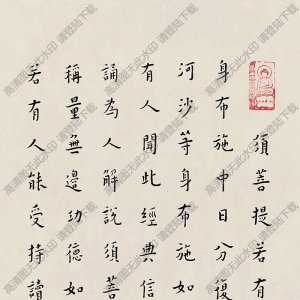 須菩提若有
身布施中日分復
河沙等身布施如
有人聞此經典信
誦為人解說須菩
稱量無邊功德如
若有人能受持讀
高清图无此水印